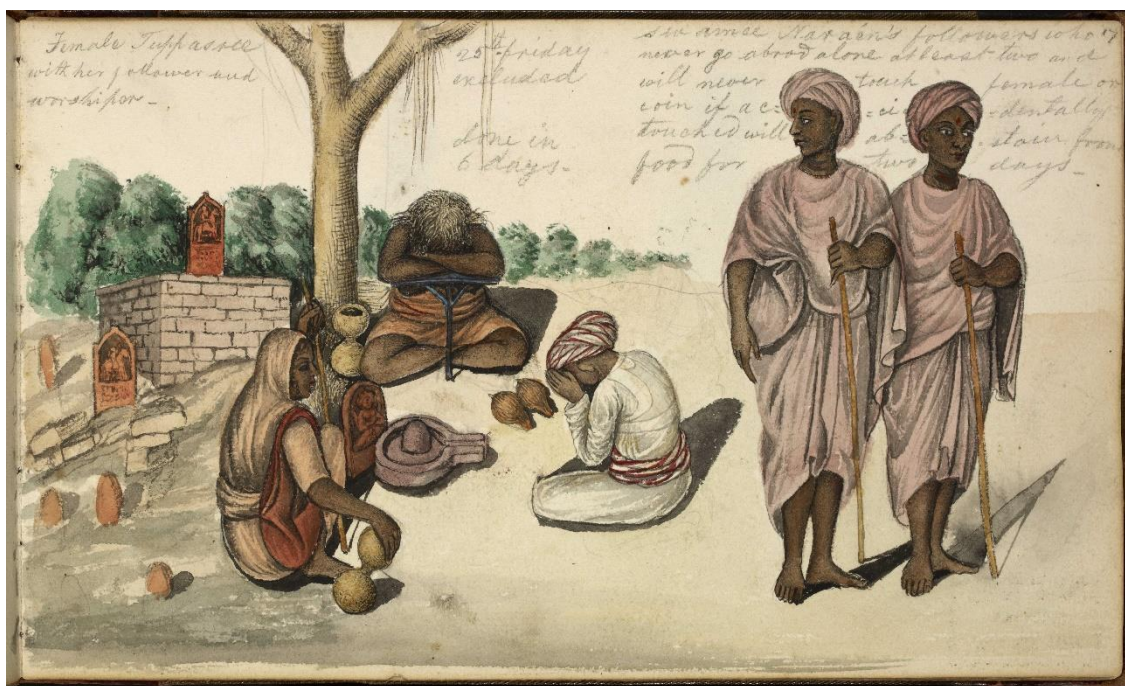 Female Tuppasree
with her follower and
worshiper -
25th friday
excluded
done in
6 days -
Swamee Naraen's followers who
never go abrod alone at least two and
will never touch female or
coin if ac= =ci= =dentally
touched will ab= stain from
food for two days -
17